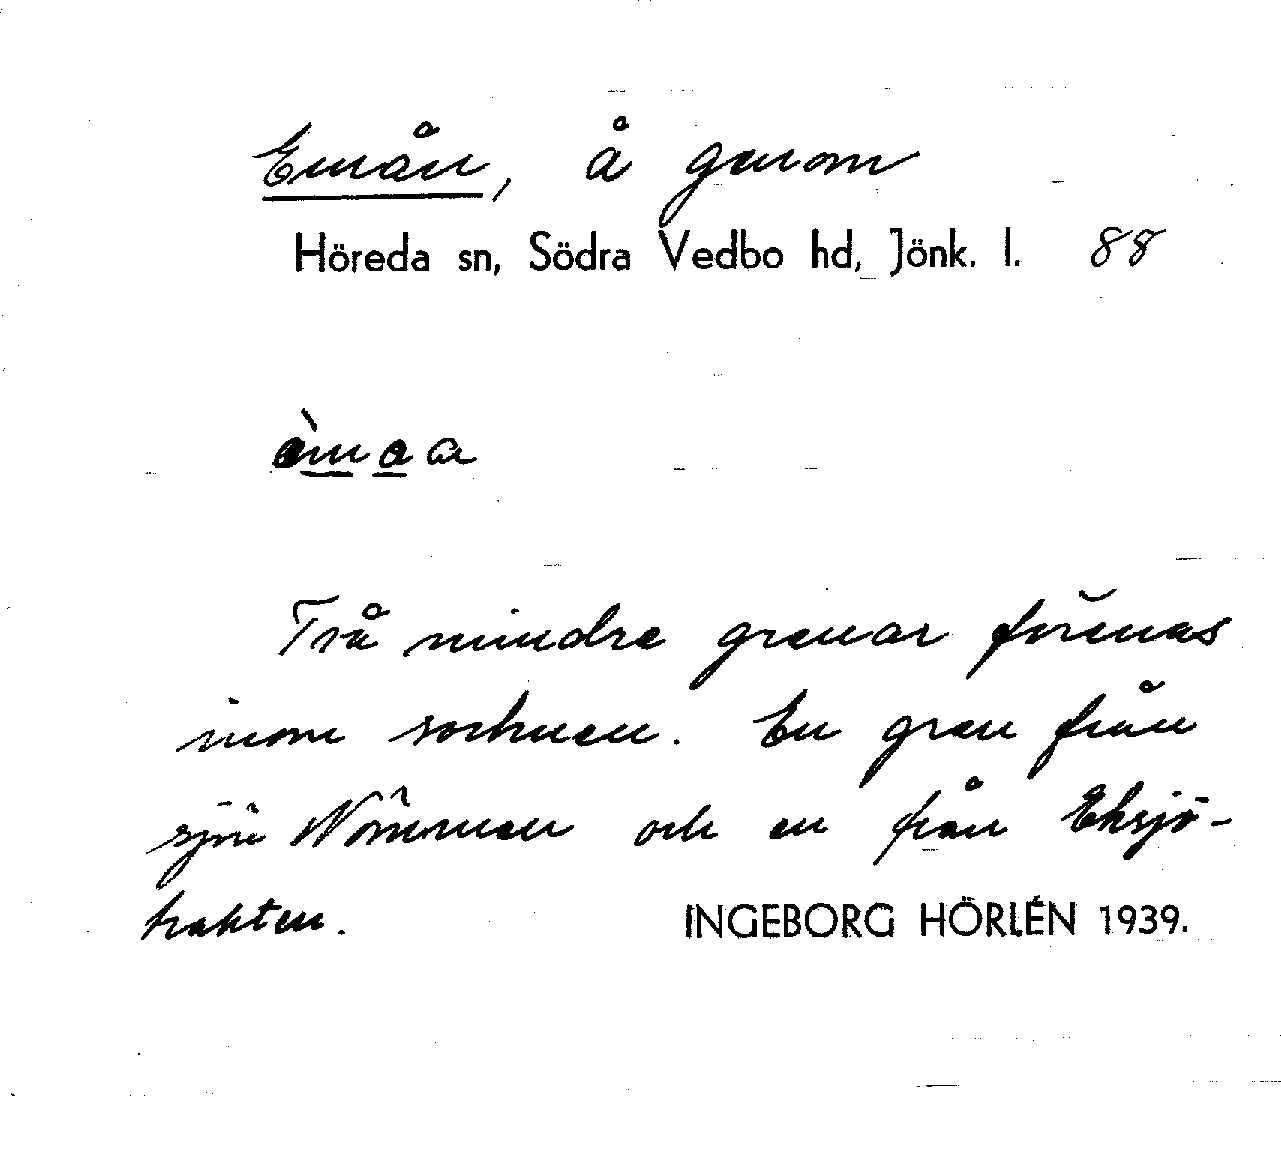 Emån, å genom
Höreda sn, Södra Vedbo hd, Jönk. l. 88
Två mindre grenar förenas
inom socknen. En gren från
sjön Nömmen och en från Eksjö-
trakten. INGEBORG HÖRLÉN 1939.